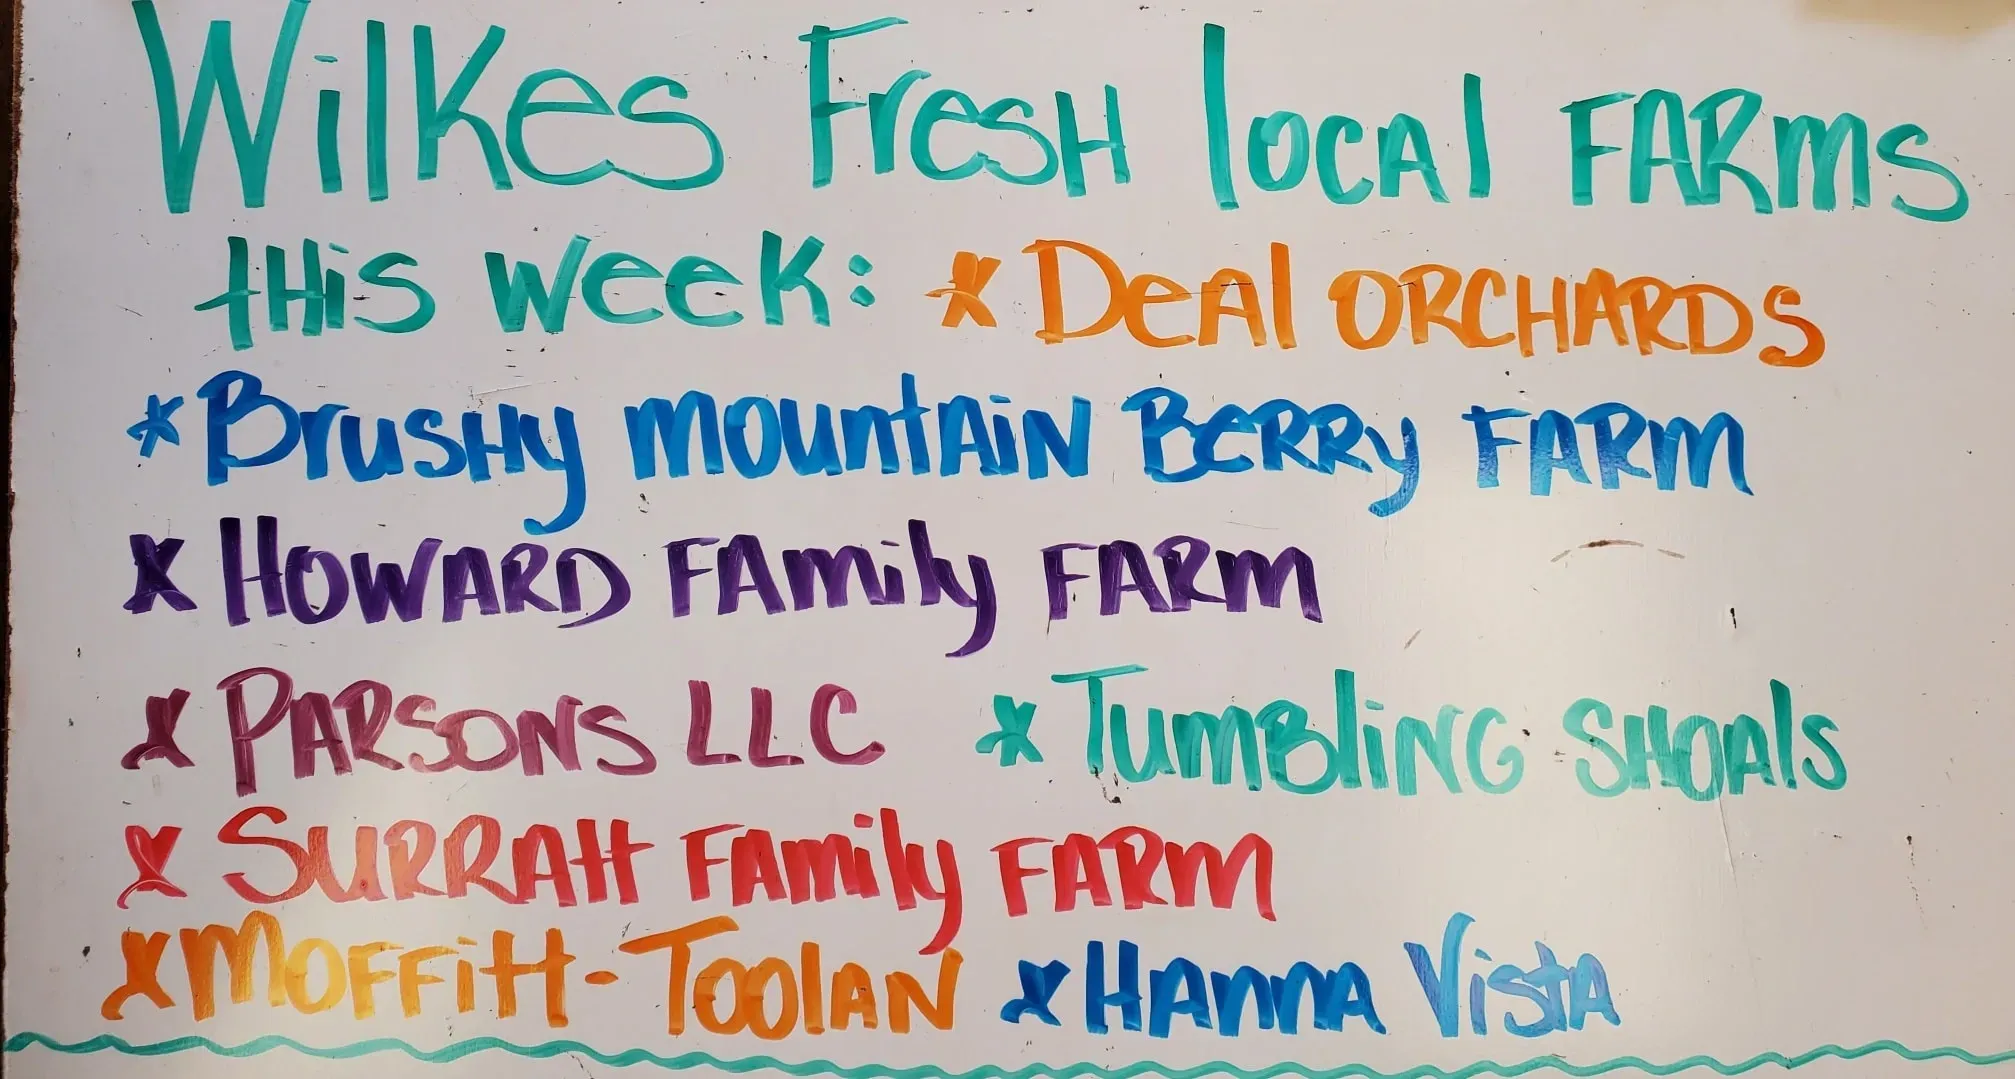 Wilkes Fresh local FARMS
this week: * Deal ORCHARDS
* Brushy mountain Berry FARM
* HOWARD FAmily FARM
* PARSONS LLC * Tumbling SHOals
* SURRAtt Family FARM
* MOFFitt-TOOlAN * HAnnA VistA